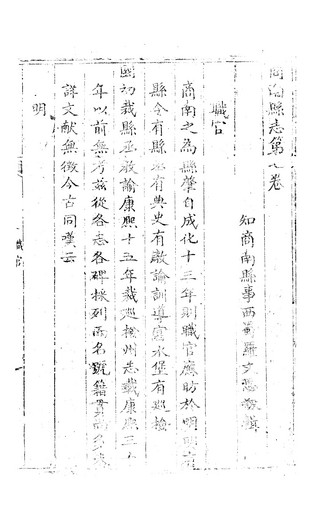 商南縣志第七卷
知商南縣事西蜀羅文思敬輯
職官
商南之為縣肇自成化十三年則職官應昉於明明
縣令有縣丞有典史有教諭訓導富水堡有巡檢
國初裁縣丞教諭康熙十五年裁巡檢州志載康熙三
年以前無考茲從各志各碑採列而名號籍貫尚多未
詳文献無徵今古同嘆云
明